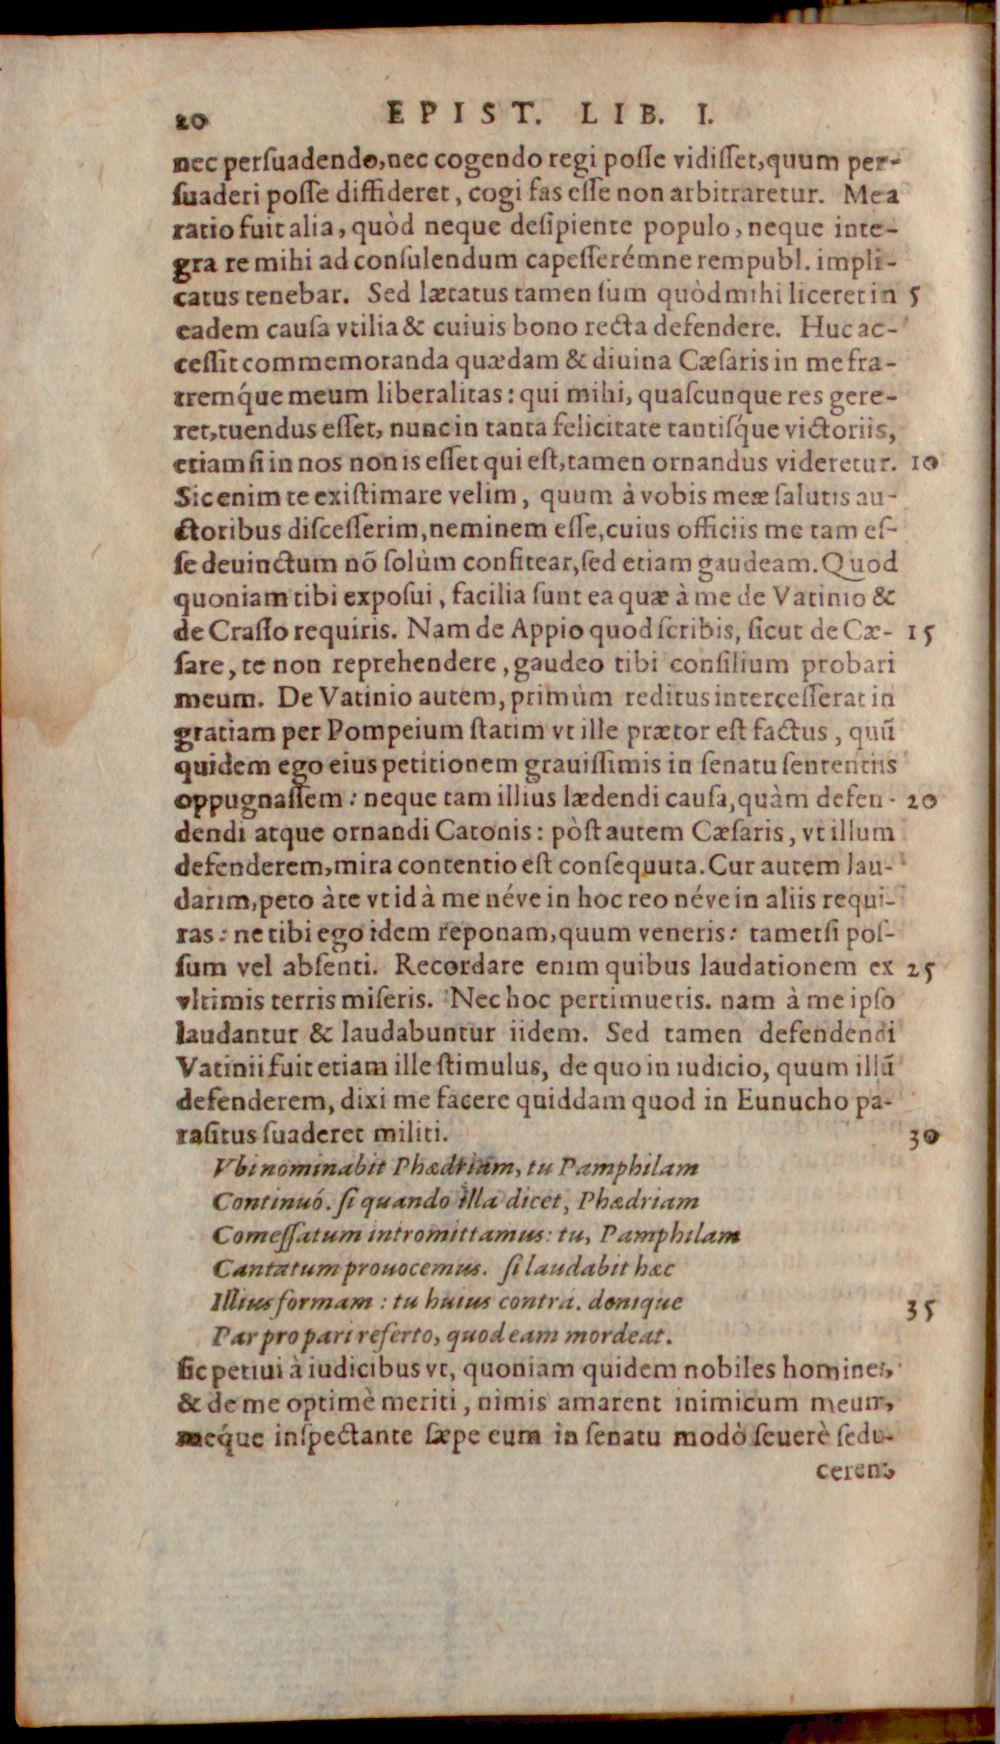 20 EPIST. LIB. I.
nec perſuadendo, nec cogendo regi poſſe vidiſſet, quum per-
ſuaderi poſſe diffideret, cogi fas eſſe non arbitraretur. Mea
ratio fuit alia, quòd neque deſipiente populo, neque inte-
gra re mihi ad conſulendum capeſſerémne rempubl. impli-
catus tenebar. Sed lætatus tamen ſum quòd mihi liceret in 5
eadem cauſa vtilia & cuiuis bono recta defendere. Huc ac-
ceſſit commemoranda quædam & diuina Cæſaris in me fra-
tremq́ue meum liberalitas: qui mihi, quaſcunque res gere-
ret, tuendus eſſet, nunc in tanta felicitate tantiſq́ue victoriis,
etiamſi in nos non is eſſet qui eſt, tamen ornandus videretur. 10
Sic enim te exiſtimare velim, quum à vobis meæ ſalutis au-
ctoribus diſceſſerim, neminem eſſe, cuius officiis me tam eſ-
ſe deuinctum nō ſolùm confitear, ſed etiam gaudeam. Quod
quoniam tibi expoſui, facilia ſunt ea quæ à me de Vatinio &
de Craſſo requiris. Nam de Appio quod ſcribis, ſicut de Cæ- 15
ſare, te non reprehendere, gaudeo tibi conſilium probari
meum. De Vatinio autem, primùm reditus interceſſerat in
gratiam per Pompeium ſtatim vt ille prætor eſt factus, quū
quidem ego eius petitionem grauiſſimis in ſenatu ſententiis
oppugnaſſem: neque tam illius lædendi cauſa, quàm defen- 20
dendi atque ornandi Catonis: pòſt autem Cæſaris, vt illum
defenderem, mira contentio eſt conſequuta. Cur autem lau-
darim, peto à te vt id à me néve in hoc reo néve in aliis requi-
ras: ne tibi ego idem reponam, quum veneris: tametſi poſ-
ſum vel abſenti. Recordare enim quibus laudationem ex 25
vltimis terris miſeris. Nec hoc pertimueris. nam à me ipſo
laudantur & laudabuntur iidem. Sed tamen defendendi
Vatinii fuit etiam ille ſtimulus, de quo in iudicio, quum illū
defenderem, dixi me facere quiddam quod in Eunucho pa-
raſitus ſuaderet militi. 30
Vbi nominabit Phædriam, tu Pamphilam
Continuó. ſi quando illa dicet, Phædriam
Comeſſatum intromittamus: tu, Pamphilam
Cantatum prouocemus. ſi laudabit hæc
Illius formam: tu huius contrá. denique 35
Par pro pari referto, quod eam mordeat.
ſic petiui à iudicibus vt, quoniam quidem nobiles homines,
& de me optimè meriti, nimis amarent inimicum meum,
meq́ue inſpectante ſæpe eum in ſenatu modò ſeuerè ſedu-
cerent,